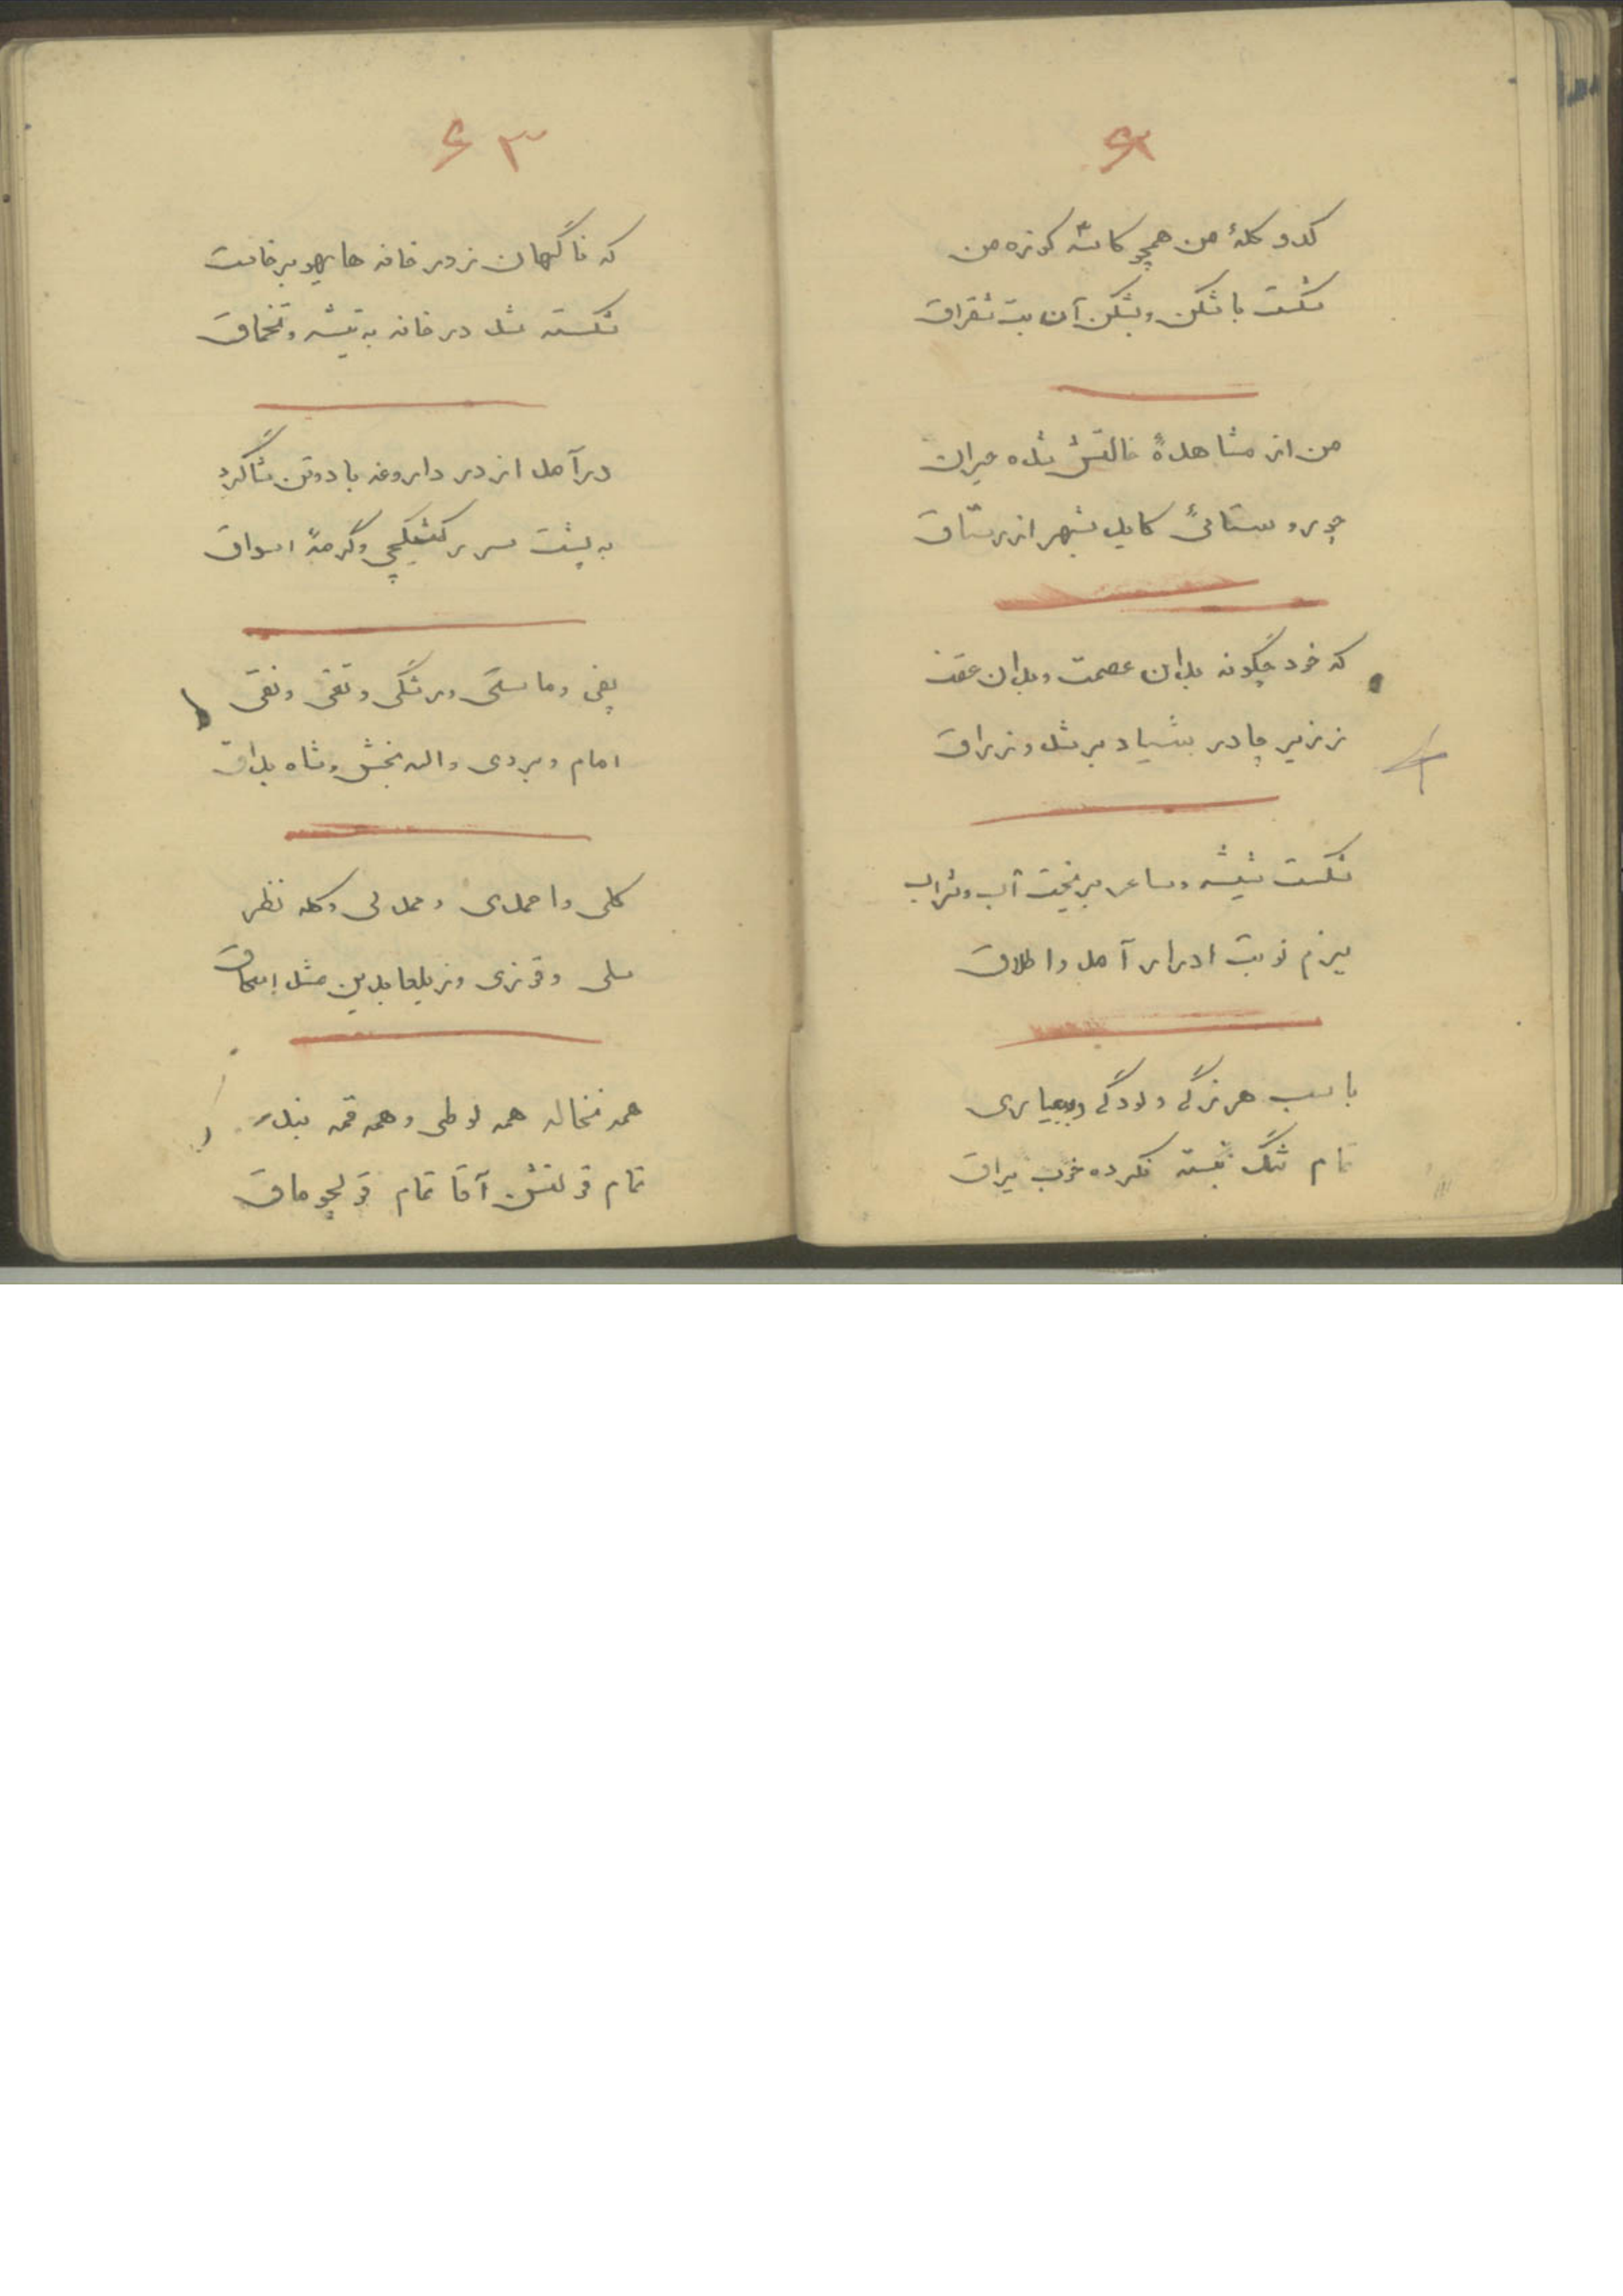 ۶۲
کدو کلهٔ من همچو کاسهٔ کوزه من
شکست با شکن و بشکن آن بت شقراق
من از مشاهدهٔ حالتش شده حیران
چو روستائی کاید بشهر از رستاق
که خود چگونه بدان عصمت و بدان عفت
ز زیر چادر بنیاد بر شد و زراق
شکست شیشه و ساغر بریخت آب و شراب
بیزم نوبت ادرار آمد و اطلاق
باسب هرزگی و لودگی و بیعاری
تمام تنگ نبسته نکرده خوب یراق
۶۳
که ناگهان ز در خانه هایهو برخاست
شکسته شد در خانه به تیشه و تخماق
درآمد از در داروغه با دوتن شاگرد
به پشت سر بر کشیکچی و گزمهٔ اسواق
پفی و ماستی و رشکی و تقی و نقی
امام ویردی و الله بخش و شاه بداق
کلی و احمدی و ممدلی و کله نظر
ملی و قوزی و زینلعابدین مثل اسحاق
همه نخاله همه لوطی و همه قمه بند
تمام قولتشن آقا تمام قولچوماق